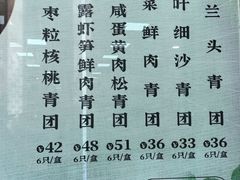 枣粒核桃青团
¥42
6只/盒
露虾笋鲜肉青团
¥48
6只/盒
咸蛋黄肉松青团
¥51
6只/盒
菜鲜肉青团
¥36
6只/盒
叶细沙青团
¥33
6只/盒
兰头青团
¥36
6只/盒